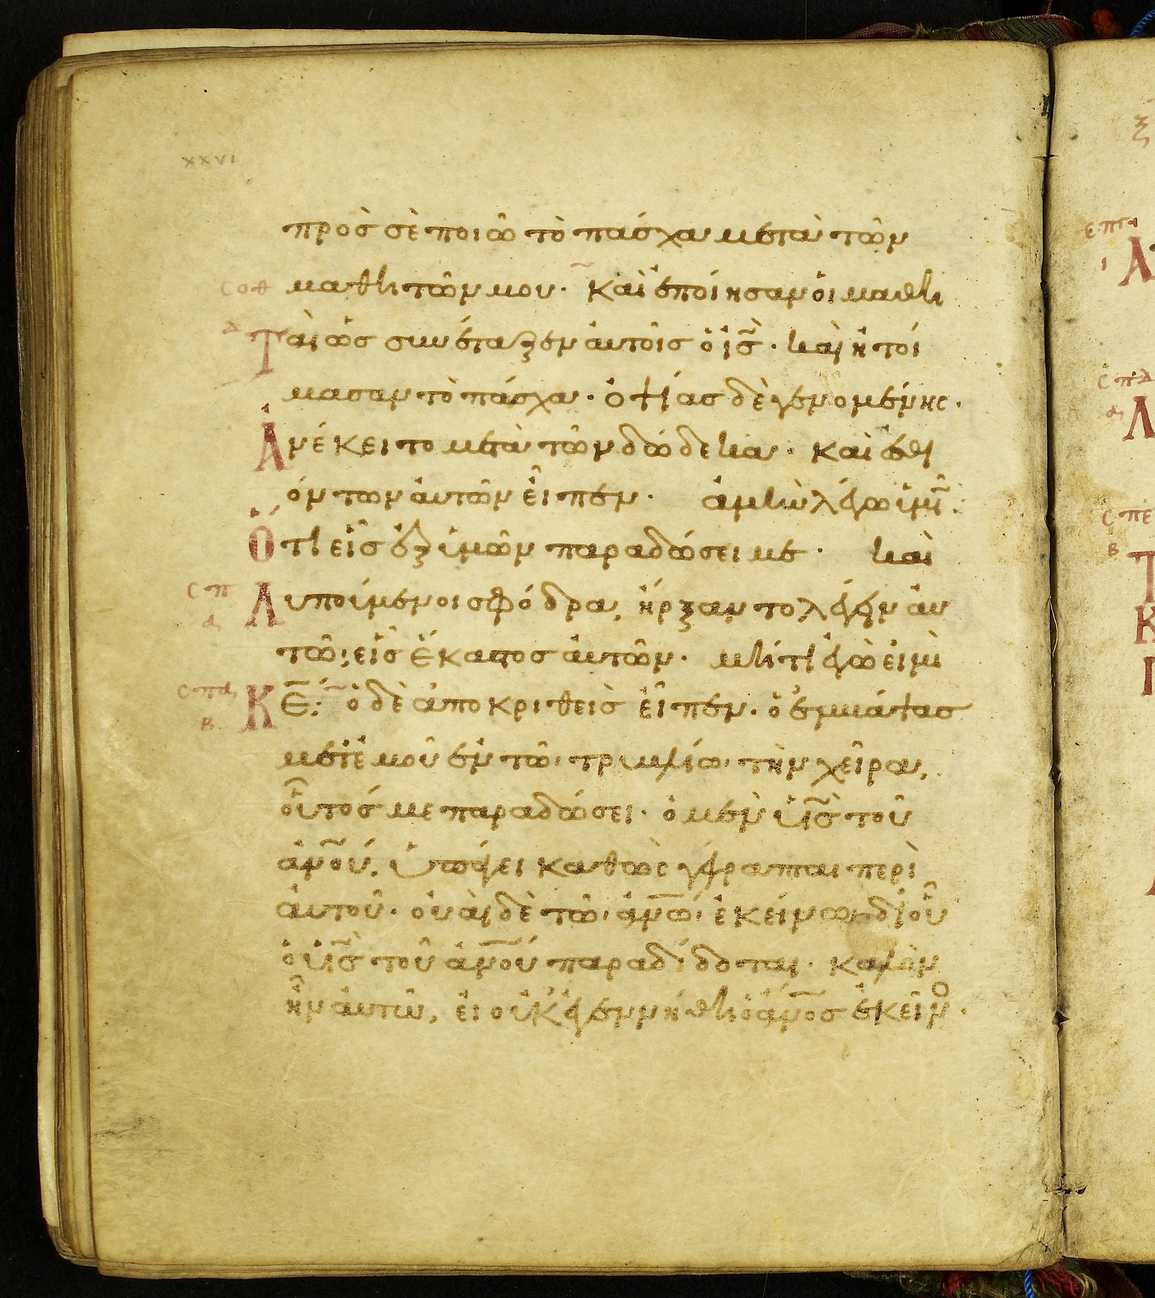 xxvi
προσ σὲ ποιῶ τὸ πάσχα μετὰ τῶν
σοθ μαθητῶν μου· καὶ ἐποίησαν ὁι μαθη
δ Ταὶ ὡσ συνέταξεν ἀυτοῖσ ὁ ἰς̅· καὶ ἡτοί
μασαν τὸ πάσχα· ὀψίασ δὲ γενομένης·
Ἀνέκειτο μετὰ τῶν δώδεκα· καὶ ἐσθι
όντων ἀυτῶν εἶπεν· ἀμὴν λέγω ὑμῖ̅·
Ὅτι εἷσ ἐξ ὑμῶν παραδώσει με· καὶ
σπ Λυπούμενοι σφόδρα, ἤρξαντο λέγειν ἀυ
δ τῶ; εἷσ ἕκαστοσ ἀυτῶν· μήτι ἐγώ εἰμὶ
σπα Κε̅; ὁ δὲ ἀποκριθεὶσ εἶπεν· ὁ ἐμβάψασ
β μετ ἐμοῦ ἐν τῶ τρυβλίω τὴν χεῖρα,
οὗτόσ με παραδώσει· ὁ μὲν ὑι̅σ̅ τοῦ
ἀν̅ο̅υ, ὑπάγει καθὼς γέγραπται περὶ
ἀυτοῦ· οὐαὶ δὲ τῶ ἀν̅ω̅ ἐκείνω δι οὗ
ὁ ὑι̅σ̅ τοῦ ἀν̅ο̅υ παραδίδοται· καλὸν
ἦν ἀυτῶ, εἰ οὐκ ἐγεννήθη ὁ ἄν̅ο̅σ ἐκεῖνο·